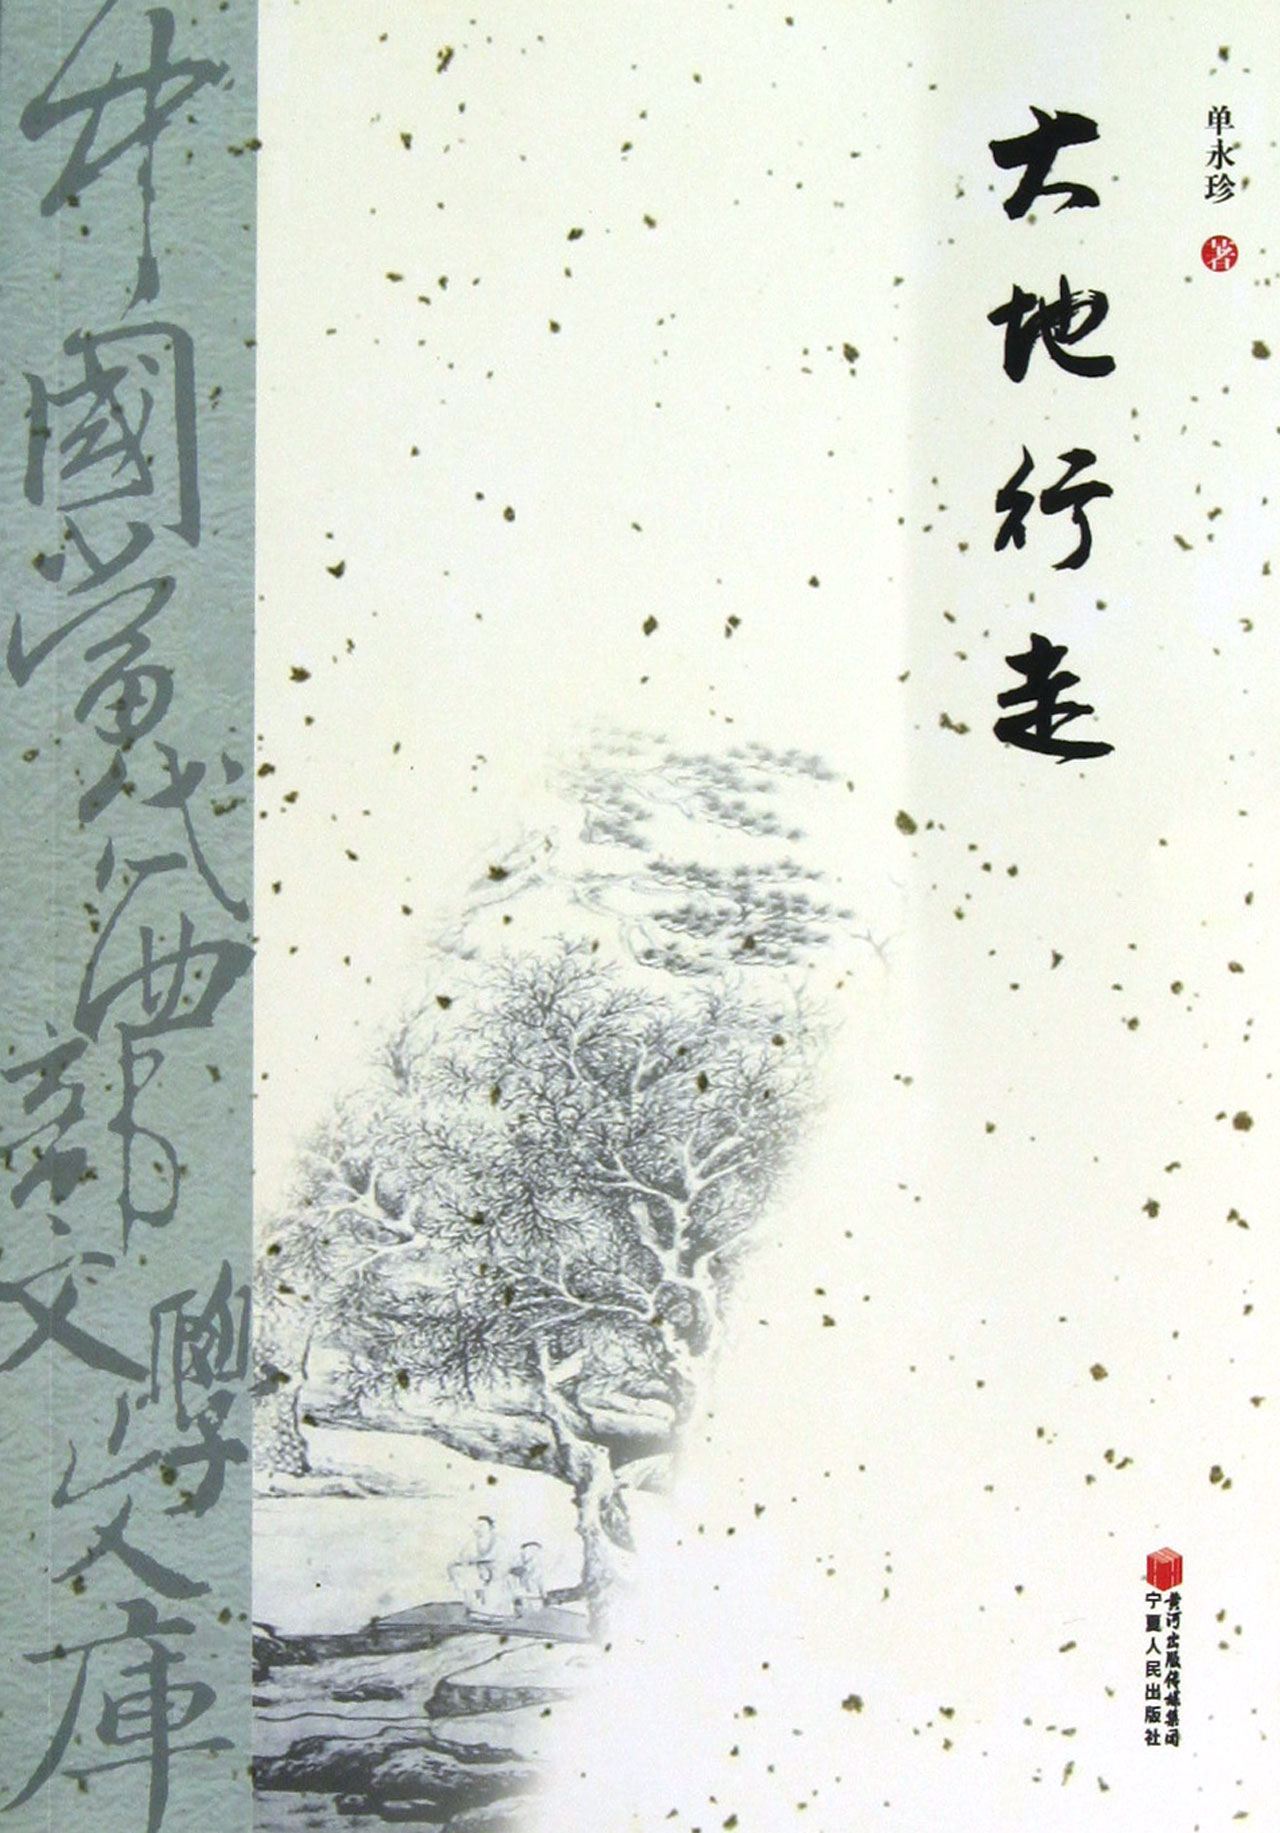 单永珍 著
大地行走
中國當代西部文學文庫
黄河出版传媒集团
宁夏人民出版社